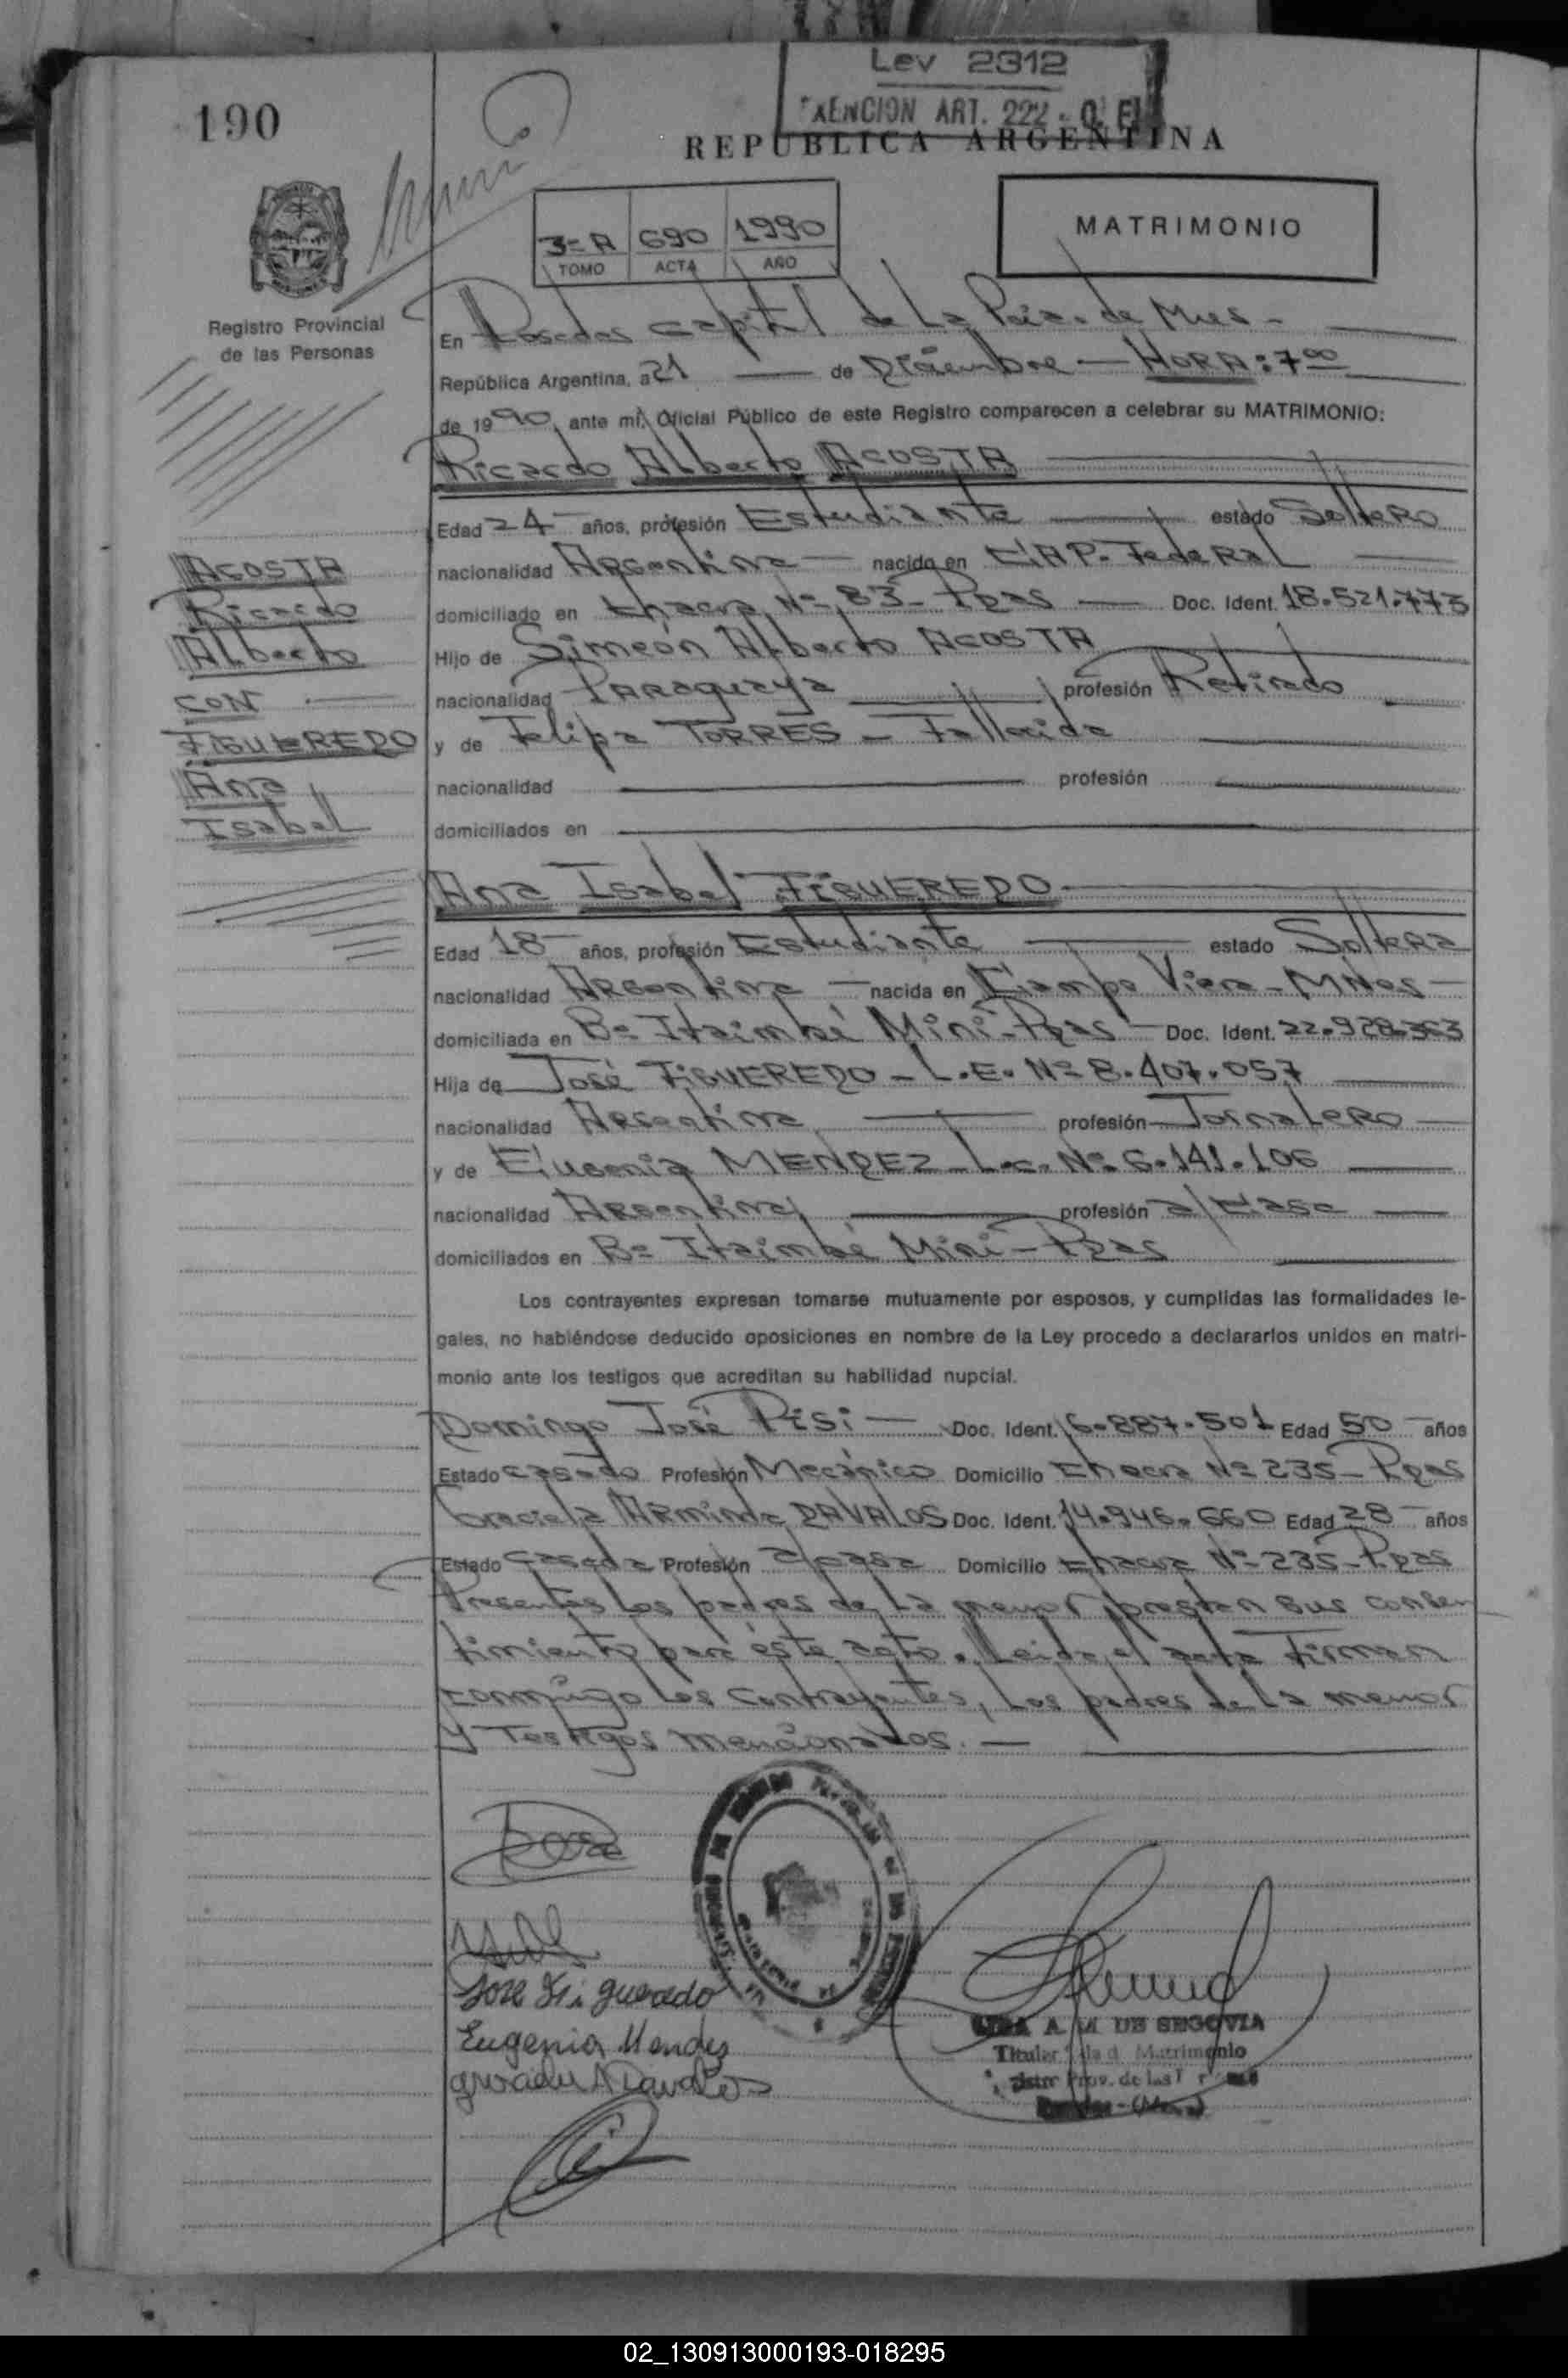 Ley 2312
EXENCION ART. 222 - C. F.
190
REPUBLICA ARGENTINA
3=A 690 1990
TOMO ACTA AÑO
MATRIMONIO
Registro Provincial
de las Personas
En Posadas capital de La Pcia. de Mnes -
República Argentina, a 21 de Diciembre — HORA: 7 00
de 1990, ante mí, Oficial Público de este Registro comparecen a celebrar su MATRIMONIO:
Ricardo Alberto ACOSTA
Edad 24 años, profesión Estudiante estado Soltero
nacionalidad Argentina nacido en CAP. Federal
domiciliado en Chacra Nº 83 - Pdas Doc. Ident. 18.521.773
Hijo de Simeón Alberto ACOSTA
nacionalidad Paraguaya profesión Retirado
y de Felipa TORRES - Fallecida
nacionalidad profesión
domiciliados en
ACOSTA
Ricardo
Alberto
CON
FIGUEREDO
Ana
Isabel
Ana Isabel FIGUEREDO
Edad 18 años, profesión Estudiante estado Soltera
nacionalidad Argentina nacida en Campo Viera - MNes -
domiciliada en Bº Itaimbé Miní - Pdas - Doc. Ident. 22.928.363
Hija de José FIGUEREDO - L.E. Nº 8.407.057
nacionalidad Argentina profesión Jornalero
y de Eugenia MENDEZ L.C. Nº 6.141.106
nacionalidad Argentina profesión a/casa
domiciliados en Bº Itaimbé Miní - Pdas
Los contrayentes expresan tomarse mutuamente por esposos, y cumplidas las formalidades le-
gales, no habiéndose deducido oposiciones en nombre de la Ley procedo a declararlos unidos en matri-
monio ante los testigos que acreditan su habilidad nupcial.
Domingo José Pisi Doc. Ident. 6.887.501 Edad 50 años
Estado casado Profesión Mecánico Domicilio Chacra Nº 235 - Pdas
Graciela Arminda DAVALOS Doc. Ident. 14.946.660 Edad 28 años
Estado casada Profesión a/casa Domicilio Chacra Nº 235 - Pdas
Presentes los padres de la menor prestan sus consen
timiento para éste acto. Leida el acta Firman
conmigo los contrayentes, los padres de la menor
y Testigos mencionados. —
Jose Figueredo
Eugenia Mendes
A Davalos
A. M. DE SEGOVIA
Titular Matrimonio
Prov. de las
02_130913000193-018295